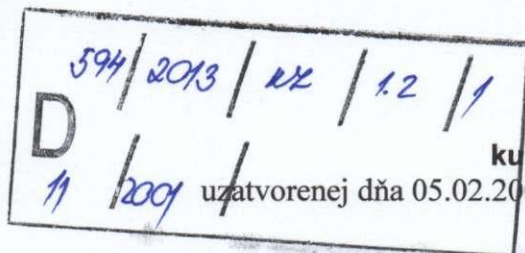 594/2013/NZ/1.2/1
D
ku
11/2001/
uzatvorenej dňa 05.02.20